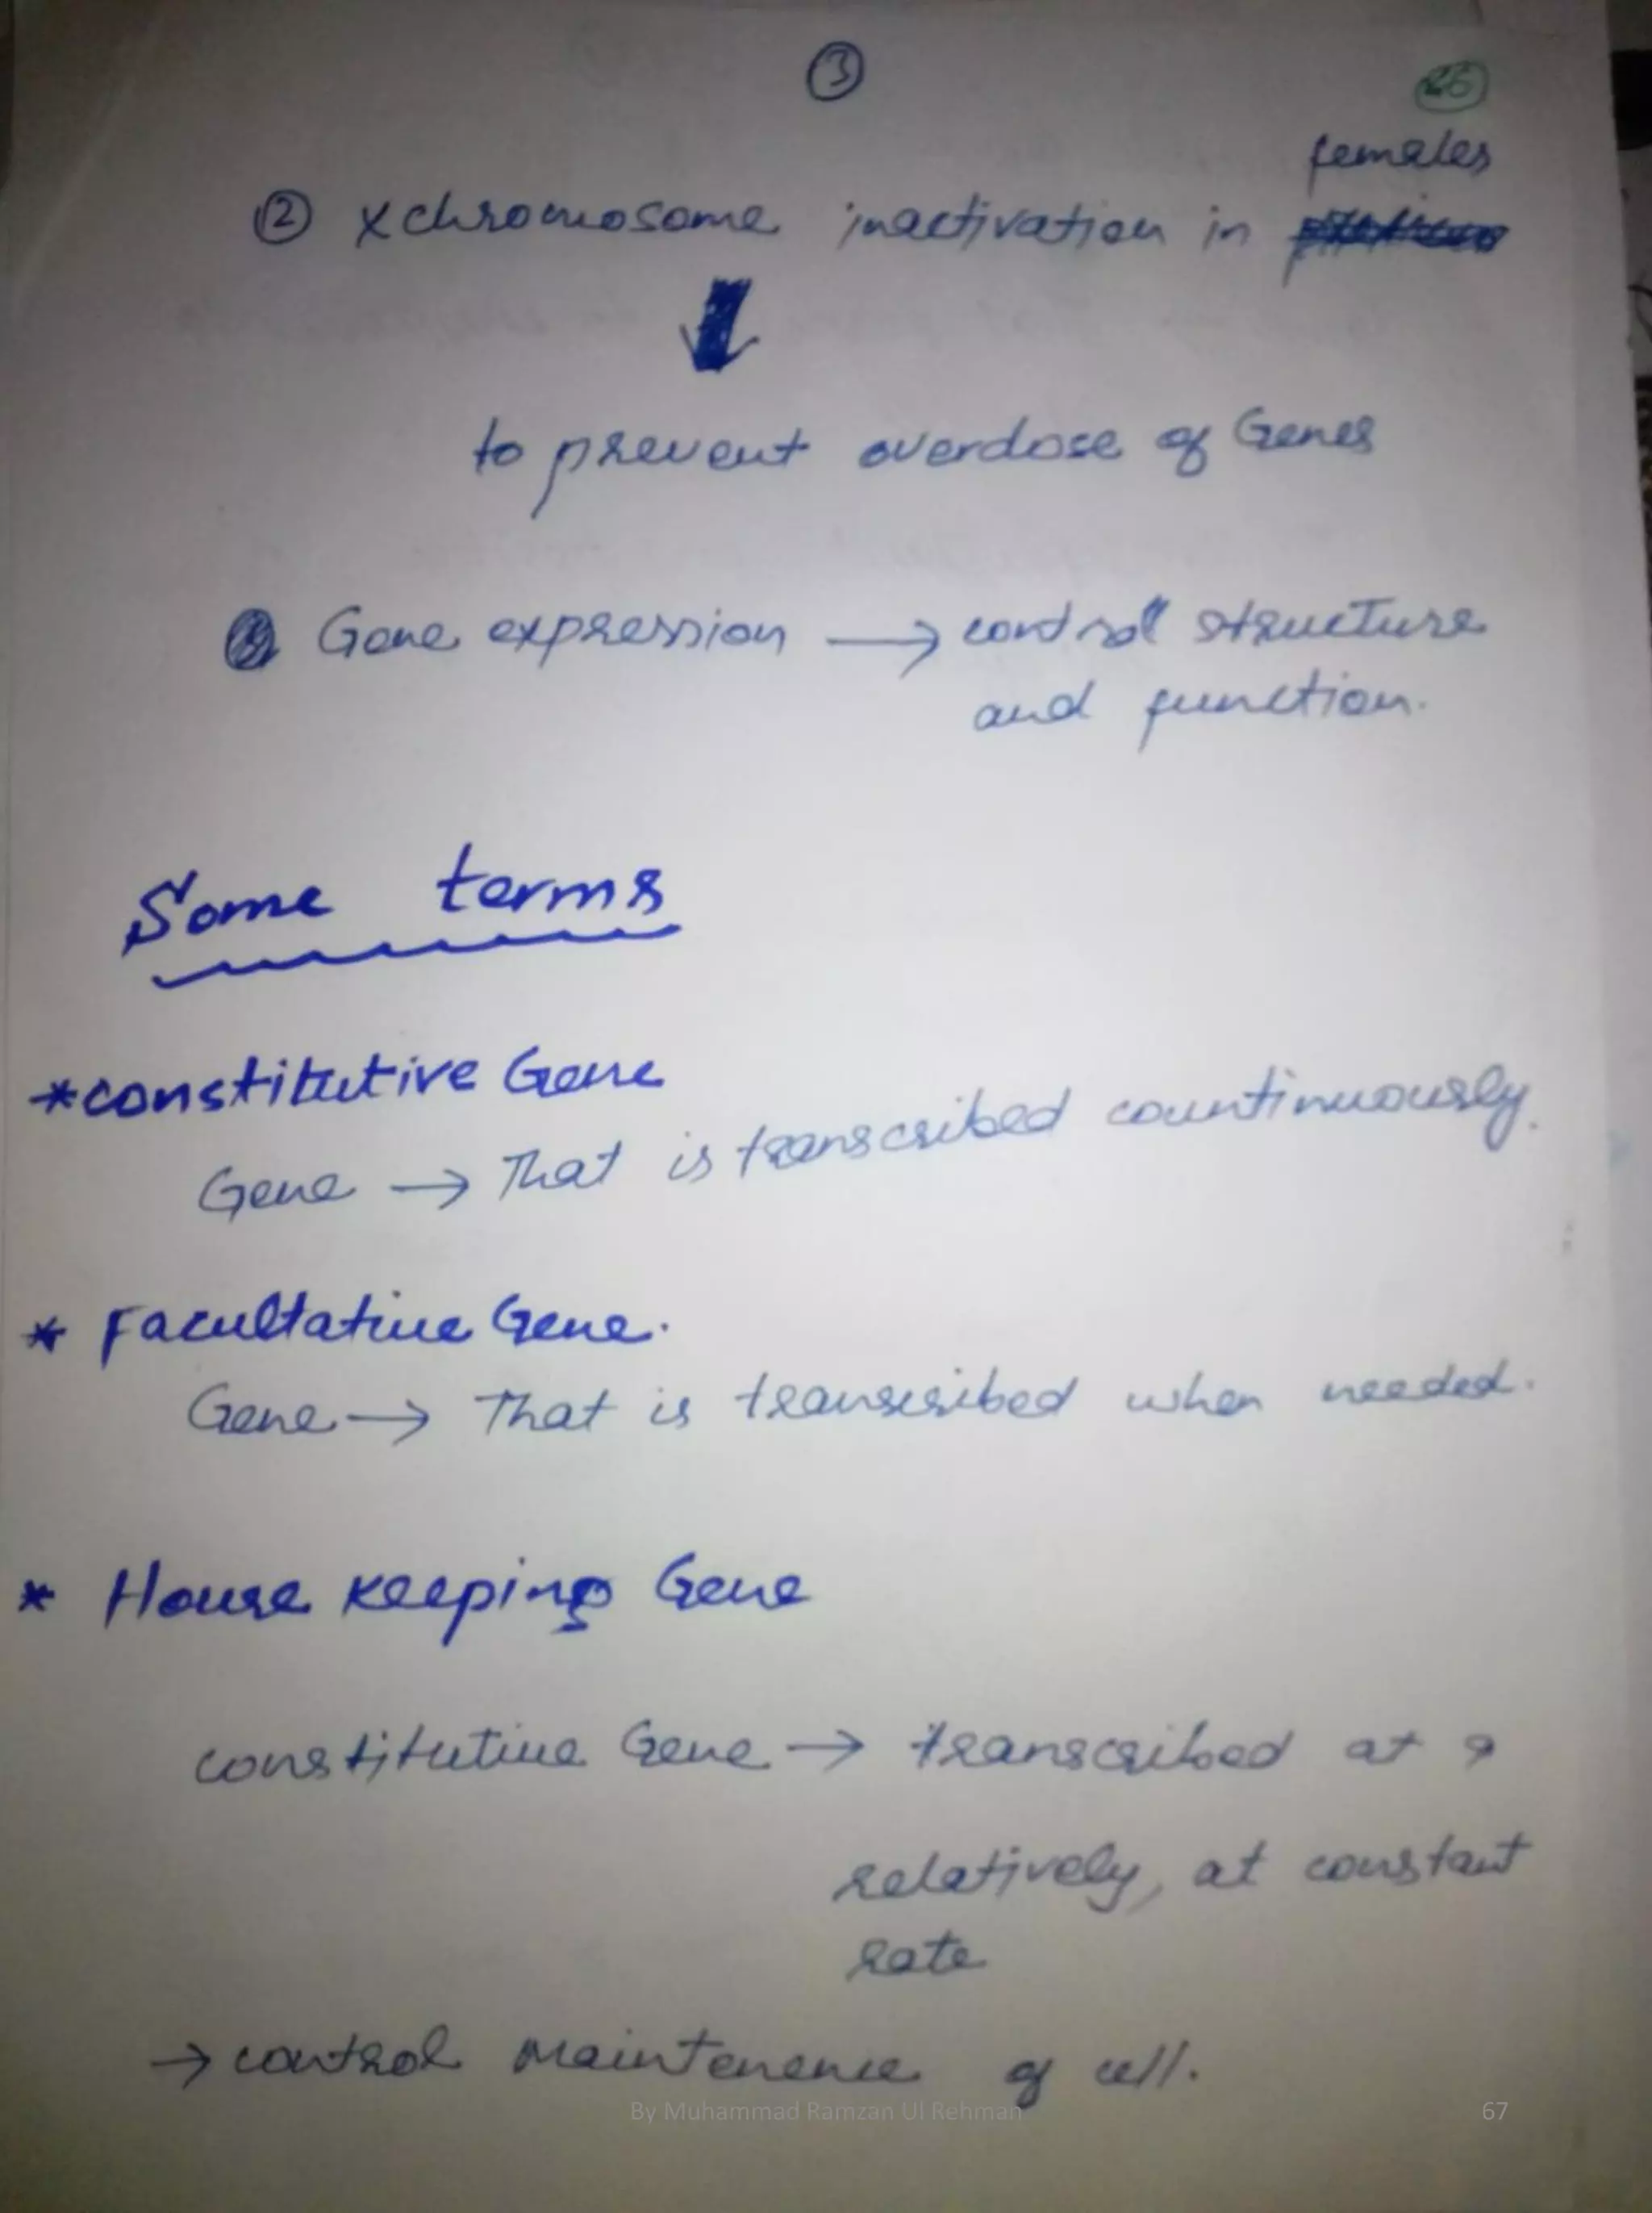 3
26
females
② x chromosome inactivation in
to prevent overdose of Genes
Gene expression → control structure
and function.
Some terms
*constitutive Gene
Gene → That is transcribed countinuously.
* Facultative Gene.
Gene → That is transcribed when needed.
* House keeping Gene
constitutive Gene → transcribed at a
relatively, at constant
rate
→ control maintenence of cell.
By Muhammad Ramzan Ul Rehman
67